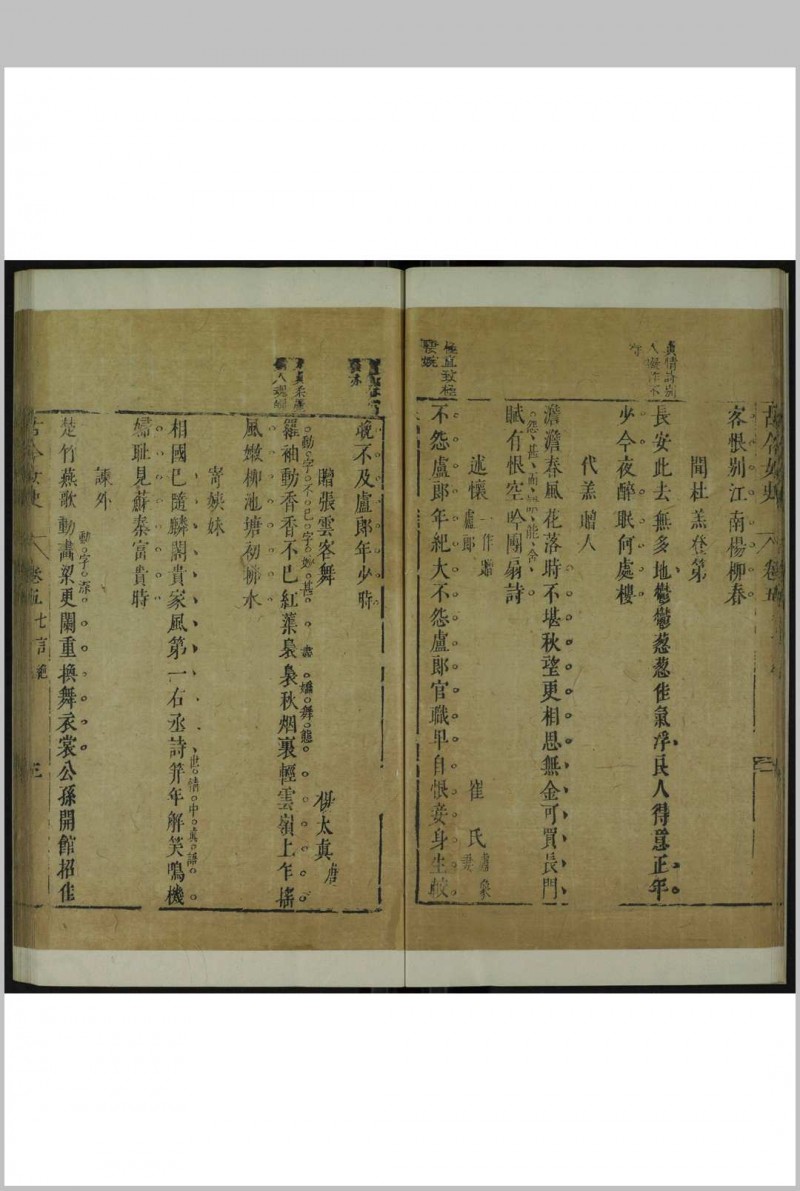 古今女史 卷五
客恨別江南楊柳春
聞杜羔登第
長安此去無多地鬱鬱葱葱佳氣浮良人得意正年
少今夜醉眠何處樓
代羔贈人
澹澹春風花落時不堪秋望更相思無金可買長門
賦有恨空吟團扇詩
述懷 一作贈盧郎 崔氏
不怨盧郎年紀大不怨盧郎官職早自恨妾身生較
晚不及盧郎年少時
贈張雲容舞 楊太真 唐
動字不已字妙甚
羅袖動香香不已紅蕖裊裊秋烟裏輕雲嶺上乍搖
風嫩柳池塘初拂水
寄姨妹
世情中真語
相國已隨麟閣貴家風第一右丞詩笄年解笑鳴機
婦耻見蘇秦富貴時
諫外
動字
楚竹燕歌動畵梁更闌重換舞衣裳公孫開館招佳
古今女史 卷五七言絕 三